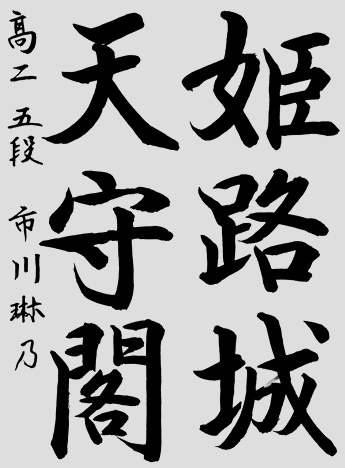 姫路城
天守閣
高二 五段 市川琳乃